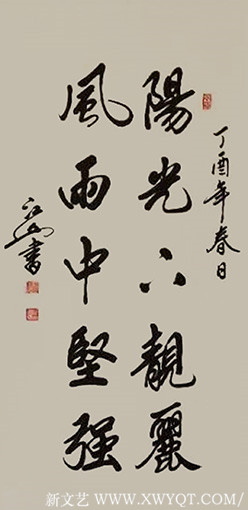 丁酉年春日
陽光下靚麗
風雨中堅强
新文艺 WWW.XWYQT.COM